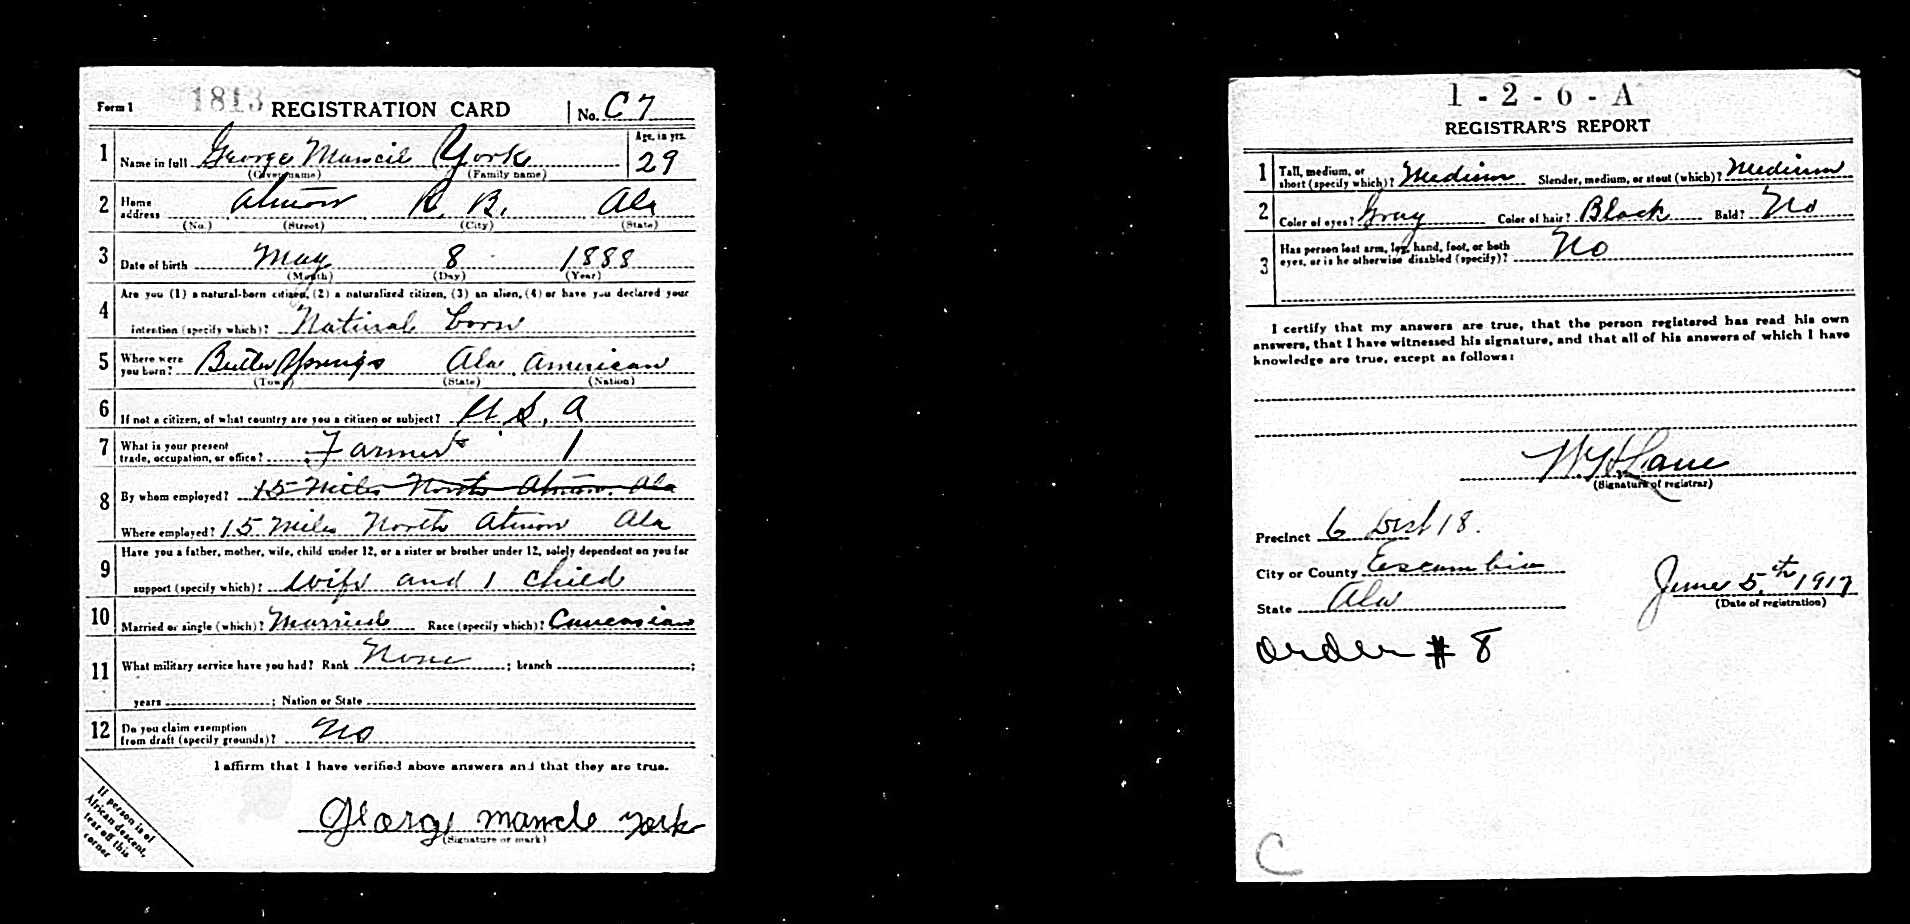 Form 1 1813 REGISTRATION CARD No. C 7
1 Name in full George Mancil York Age, in yrs. 29
(Given name) (Family name)
2 Home address Atmore R. B. Ala
(No.) (Street) (City) (State)
3 Date of birth May 8 1888
(Month) (Day) (Year)
4 Are you (1) a natural-born citizen, (2) a naturalized citizen, (3) an alien, (4) or have you declared your
intention (specify which)? Natural born
5 Where were you born? Butler Springs Ala American
(Town) (State) (Nation)
6 If not a citizen, of what country are you a citizen or subject? U.S.A
7 What is your present
trade, occupation, or office? Farmer 1
8 By whom employed? 15 Miles North Atmore. Ala
Where employed? 15 Miles North Atmore Ala
9 Have you a father, mother, wife, child under 12, or a sister or brother under 12, solely dependent on you for
support (specify which)? wife and 1 child
10 Married or single (which)? Married Race (specify which)? Caucasian
11 What military service have you had? Rank None ; branch ;
years ; Nation or State
12 Do you claim exemption
from draft (specify grounds)? No
I affirm that I have verified above answers and that they are true.
George mancle york
(Signature or mark)
If person is of
African descent,
tear off this
corner
1 - 2 - 6 - A
REGISTRAR'S REPORT
1 Tall, medium, or
short (specify which)? Medium Slender, medium, or stout (which)? Medium
2 Color of eyes? Gray Color of hair? Black Bald? No
3 Has person lost arm, leg, hand, foot, or both
eyes, or is he otherwise disabled (specify)? No
I certify that my answers are true, that the person registered has read his own
answers, that I have witnessed his signature, and that all of his answers of which I have
knowledge are true, except as follows:
Lane
(Signature of registrar)
Precinct 6 Dist 18.
City or County Escambia
State Ala
June 5th, 1917
(Date of registration)
order # 8
C